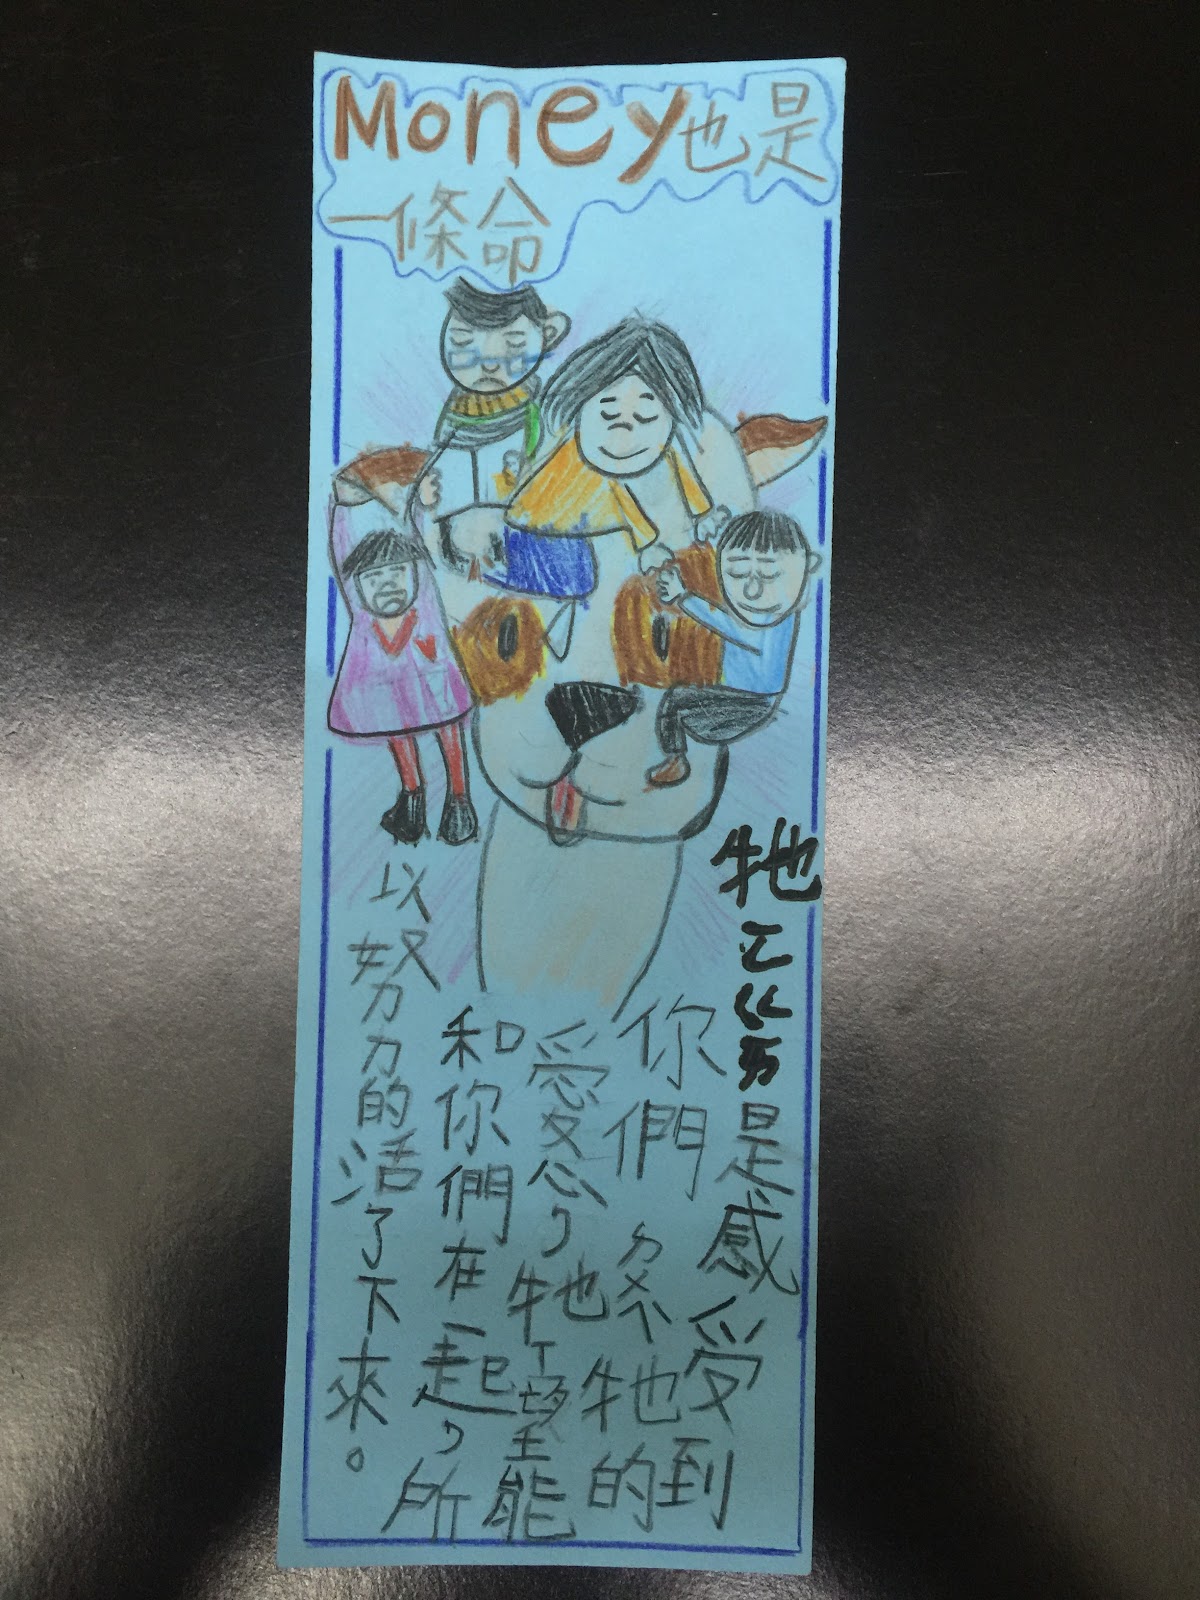 Money也是
一條命
牠ㄧㄥㄍㄞ是感受到
你們ㄉㄨㄟ牠的
愛心，牠ㄒㄧ望能
和你們在一起，所
以努力的活了下來。